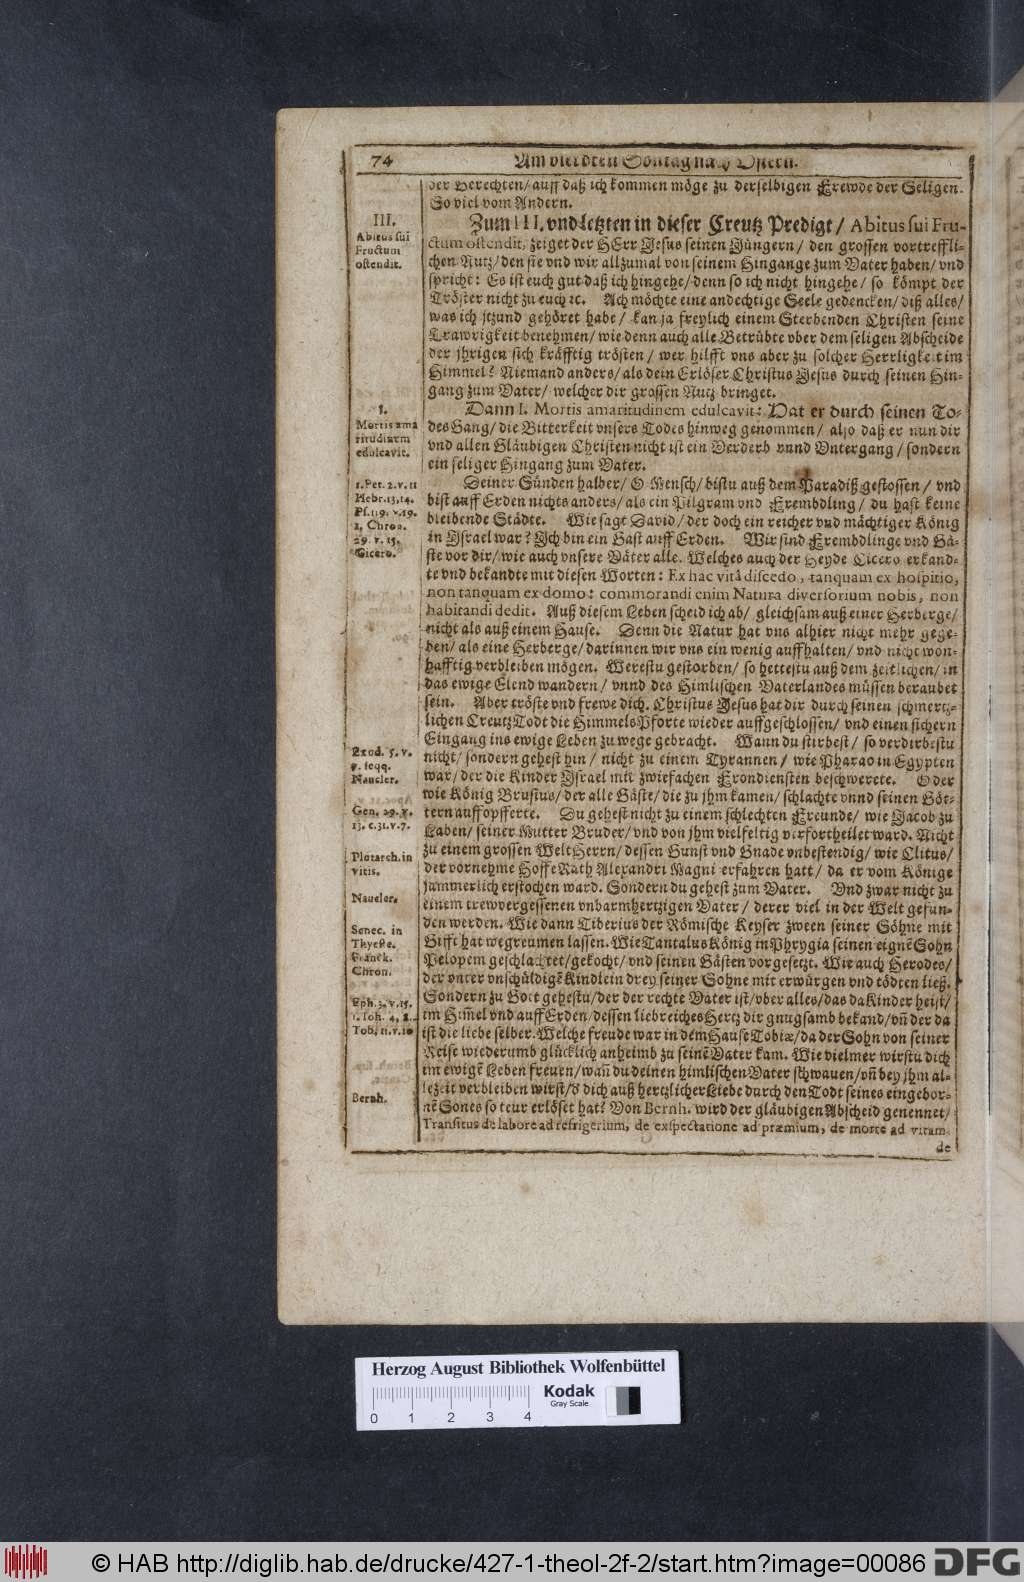 74 Am vierdten Sontag nach Ostern.
der Gerechten/ auff daß ich kommen möge zu derselbigen Frewde der Seligen.
So viel vom Andern.
III.
Abitus sui
Fructum
ostendit.
Zum III. vnd Letzten in dieser Creutz Predigt/ Abitus sui Fru-
ctum ostendit, zeiget der HErr Jesus seinen Jüngern/ den grossen vortreffli-
chen Nutz/ den sie vnd wir allzumal von seinem Hingange zum Vater haben/ vnd
spricht: Es ist euch gut daß ich hingehe/ denn so ich nicht hingehe/ so kömpt der
Tröster nicht zu euch ꝛc. Ach möchte eine andechtige Seele gedencken/ diß alles/
was ich jtzund gehöret habe/ kan ja freylich einem Sterbenden Christen seine
Trawrigkeit benehmen/ wie denn auch alle Betrübte vber dem seligen Abscheide
der jhrigen sich kräfftig trösten/ wer hilfft vns aber zu solcher Herrligkeit im
Himmel? Niemand anders/ als dein Erlöser Christus Jesus durch seinen Hin-
gang zum Vater/ welcher dir grossen Nutz bringet.
1.
Mortis ama
ritudinem
edulcavit.
Dann I. Mortis amaritudinem edulcavit: Hat er durch seinen To-
des Gang/ die Bitterkeit vnsers Todes hinweg genommen/ also daß er nun dir
vnd allen Gläubigen Christen nicht ist ein Verderb vnnd Vntergang/ sondern
ein seliger Hingang zum Vater.
1. Pet. 2. v. 11
Hebr. 13, 14.
Ps. 119. v. 19.
1. Chron.
29. v. 15.
Cicero.
Deiner Sünden halber/ O Mensch/ bistu auß dem Paradiß gestossen/ vnd
bist auff Erden nichts anders/ als ein Pilgram vnd Frembdling/ du hast keine
bleibende Städte. Wie sagt David/ der doch ein reicher vnd mächtiger König
in Israel war? Ich bin ein Gast auff Erden. Wir sind Frembdlinge vnd Gä-
ste vor dir/ wie auch vnsere Väter alle. Welches auch der Heyde Cicero erkand-
te vnd bekandte mit diesen Worten: Ex hac vitâ discedo, tanquam ex hospitio,
non tanquam ex domo: commorandi enim Natura diversorium nobis, non
habitandi dedit. Auß diesem Leben scheid ich ab/ gleichsam auß einer Herberge/
nicht als auß einem Hause. Denn die Natur hat vns alhier nicht mehr gege-
ben/ als eine Herberge/ darinnen wir vns ein wenig auffhalten/ vnd nicht won-
hafftig verbleiben mögen. Werestu gestorben/ so hettestu auß dem zeitlichen/ in
das ewige Elend wandern/ vnnd des Himlischen Vaterlandes müssen beraubet
sein. Aber tröste vnd frewe dich. Christus Jesus hat dir durch seinen schmertz-
lichen Creutz Todt die Himmels Pforte wieder auffgeschlossen/ vnd einen sichern
Eingang ins ewige Leben zu wege gebracht. Wann du stirbest/ so verdirbestu
Exod. 5. v.
7. seqq.
Naucler.
nicht/ sondern gehest hin/ nicht zu einem Tyrannen/ wie Pharao in Egypten
war/ der die Kinder Israel mit zwiefachen Frondiensten beschwerete. Oder
wie König Brusius/ der alle Gäste/ die zu jhm kamen/ schlachte vnnd seinen Göt-
Gen. 29. v.
13. c. 31. v. 7.
tern auffopfferte. Du gehest nicht zu einem schlechten Freunde/ wie Jacob zu
Laben/ seiner Mutter Bruder/ vnd von jhm vielfeltig verfortheilet ward. Nicht
Plutarch. in
vitis.
zu einem grossen Welt Herrn/ dessen Gunst vnd Gnade vnbestendig/ wie Clitus/
der vornehme Hoffe Rath Alexandri Magni erfahren hatt/ da er vom Könige
jämmerlich erstochen ward. Sondern du gehest zum Vater. Vnd zwar nicht zu
Naucler.
einem trewvergessenen vnbarmhertzigen Vater/ derer viel in der Welt gefun-
den werden. Wie dann Tiberius der Römische Keyser zween seiner Söhne mit
Senec. in
Thyeste.
Franck.
Chron.
Gifft hat wegreumen lassen. Wie Tantalus König in Phrygia seinen eignē Sohn
Pelopem geschlachtet/ gekocht/ vnd seinen Gästen vorgesetzt. Wie auch Herodes/
der vnter vnschüldigē Kindlein drey seiner Söhne mit erwürgen vnd tödten ließ.
Eph. 3. v. 15.
1. Joh. 4, 8.
Tob. 11. v. 10
Sondern zu Gott gehestu/ der der rechte Vater ist/ vber alles/ das da Kinder heist/
im Him̄el vnd auff Erden/ dessen liebreiches Hertz dir gnugsamb bekand/ vn̄ der da
ist die liebe selber. Welche freude war in dem Hause Tobiæ/ da der Sohn von seiner
Reise wiederumb glücklich anheimb zu seinē Vater kam. Wie vielmer wirstu dich
im ewigē Leben freuen/ wan̄ du deinen himlischen Vater schwauen/ vn̄ bey jhm al-
lezeit verbleiben wirst/ d dich auß hertzlicher Liebe durch den Todt seines eingebor-
Bernh.
nē Sones so teur erlöset hat? Von Bernh. wird der gläubigen Abscheid genennet/
Transitus de labore ad refrigerium, de exspectatione ad præmium, de morte ad vitam
de
Herzog August Bibliothek Wolfenbüttel
Kodak
Gray Scale
0 1 2 3 4
© HAB http://diglib.hab.de/drucke/427-1-theol-2f-2/start.htm?image=00086 DFG